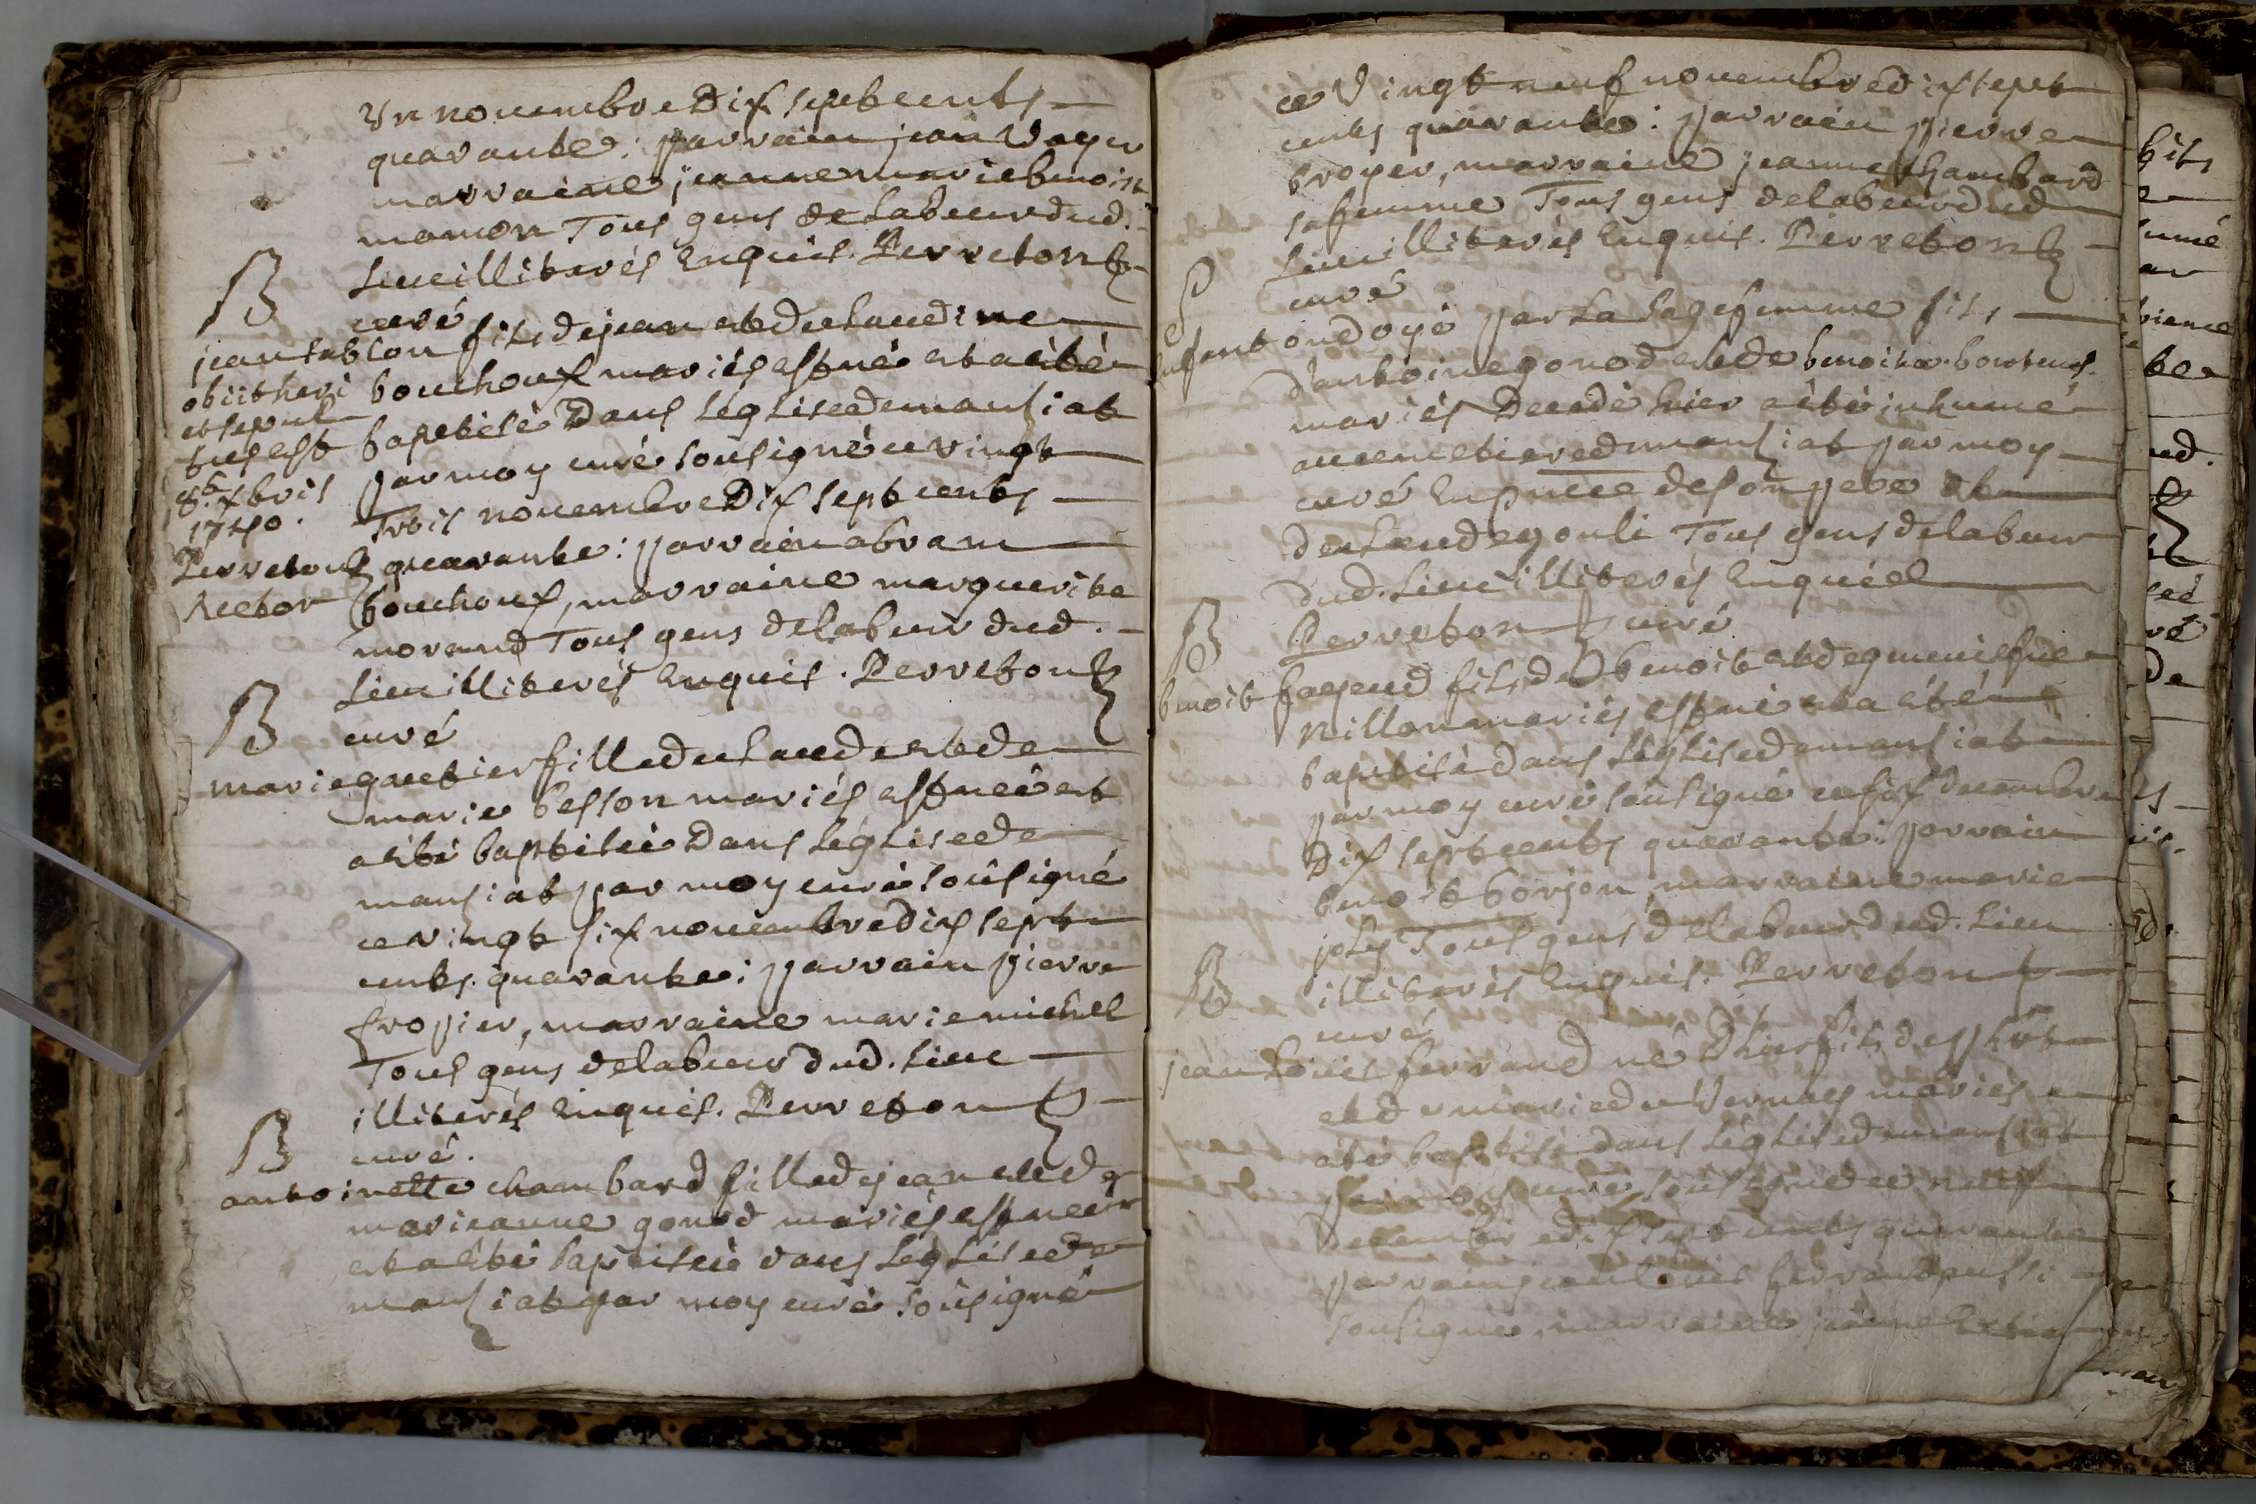 Un novembre Dix septcents
quarante : parrain jean Voyer
marraine jeanne marie benoist
manon Tous gens de labeur dud.
Lieu illiterés Enquis. Perreton
curé
B
jean sablon fils de jean et de Claudine
bouchoux mariés est né et a été
baptisé Dans L'église de mansiat
par moy curé sousigné ce vingt
Trois novembre Dix septcents
quarante : parrain abram
bouchoux, marraine marguerite
morand Tous gens de labeur dud.
Lieu illiterés Enquis. Perreton
curé
obiit heri
et sepul
tus est
8e xbris
1740.
Perreton
Rector
B
marie gautier fille de Claude et de
marie besson mariés est née et
a été baptisée Dans L'église de
mansiat par moy curé sousigné
ce vingt six novembre dix sept
cents quarante : parrain pierre
fropier, marraine marie michel
Tous gens de labeur dud. Lieu
illiterés Enquis. Perreton
curé.
B
antoinette chambard fille de jean et de
marieanne gonod mariés est née
et a été baptisée dans L'église de
mansiat par moy curé sousigné
ce Vingt neuf novembre dix sept
cents quarante : parrain pierre
broyer, marraine jeanne chambard
sa femme Tous gens de labeur dud
Lieu illiterés Enquis. Perreton
curé
S
Enfant ondoyé par La sagefemme fils
d'antoine gonod et de benoite
mariés Decedé hier a été inhumé
au cemetiere de mansiat par moy
curé En pnce de son pere et
de Claude gouli Tous gens de labeur
dud. Lieu illiterés Enquis
Perreton curé
B
benoit fayeud fils de benoit et de
nillon mariés est né et a été
baptisé dans L'église de mansiat
par moy curé sousigné ce six decembre
Dix septcents quarante : parrain
benoit borjon, marraine marie
joly Tous gens de labeur dud. Lieu
illiterés Enquis. Perreton
curé
B
jean Louis ferrand né hier fils de
et de marie du Vernay mariés a
été baptisé dans L'église de mansiat
par moy curé sousigné ce neuf
Decembre dix sept cents quarante
parrain jean Louis ferrand aussi
sousigné, marraine jeanne